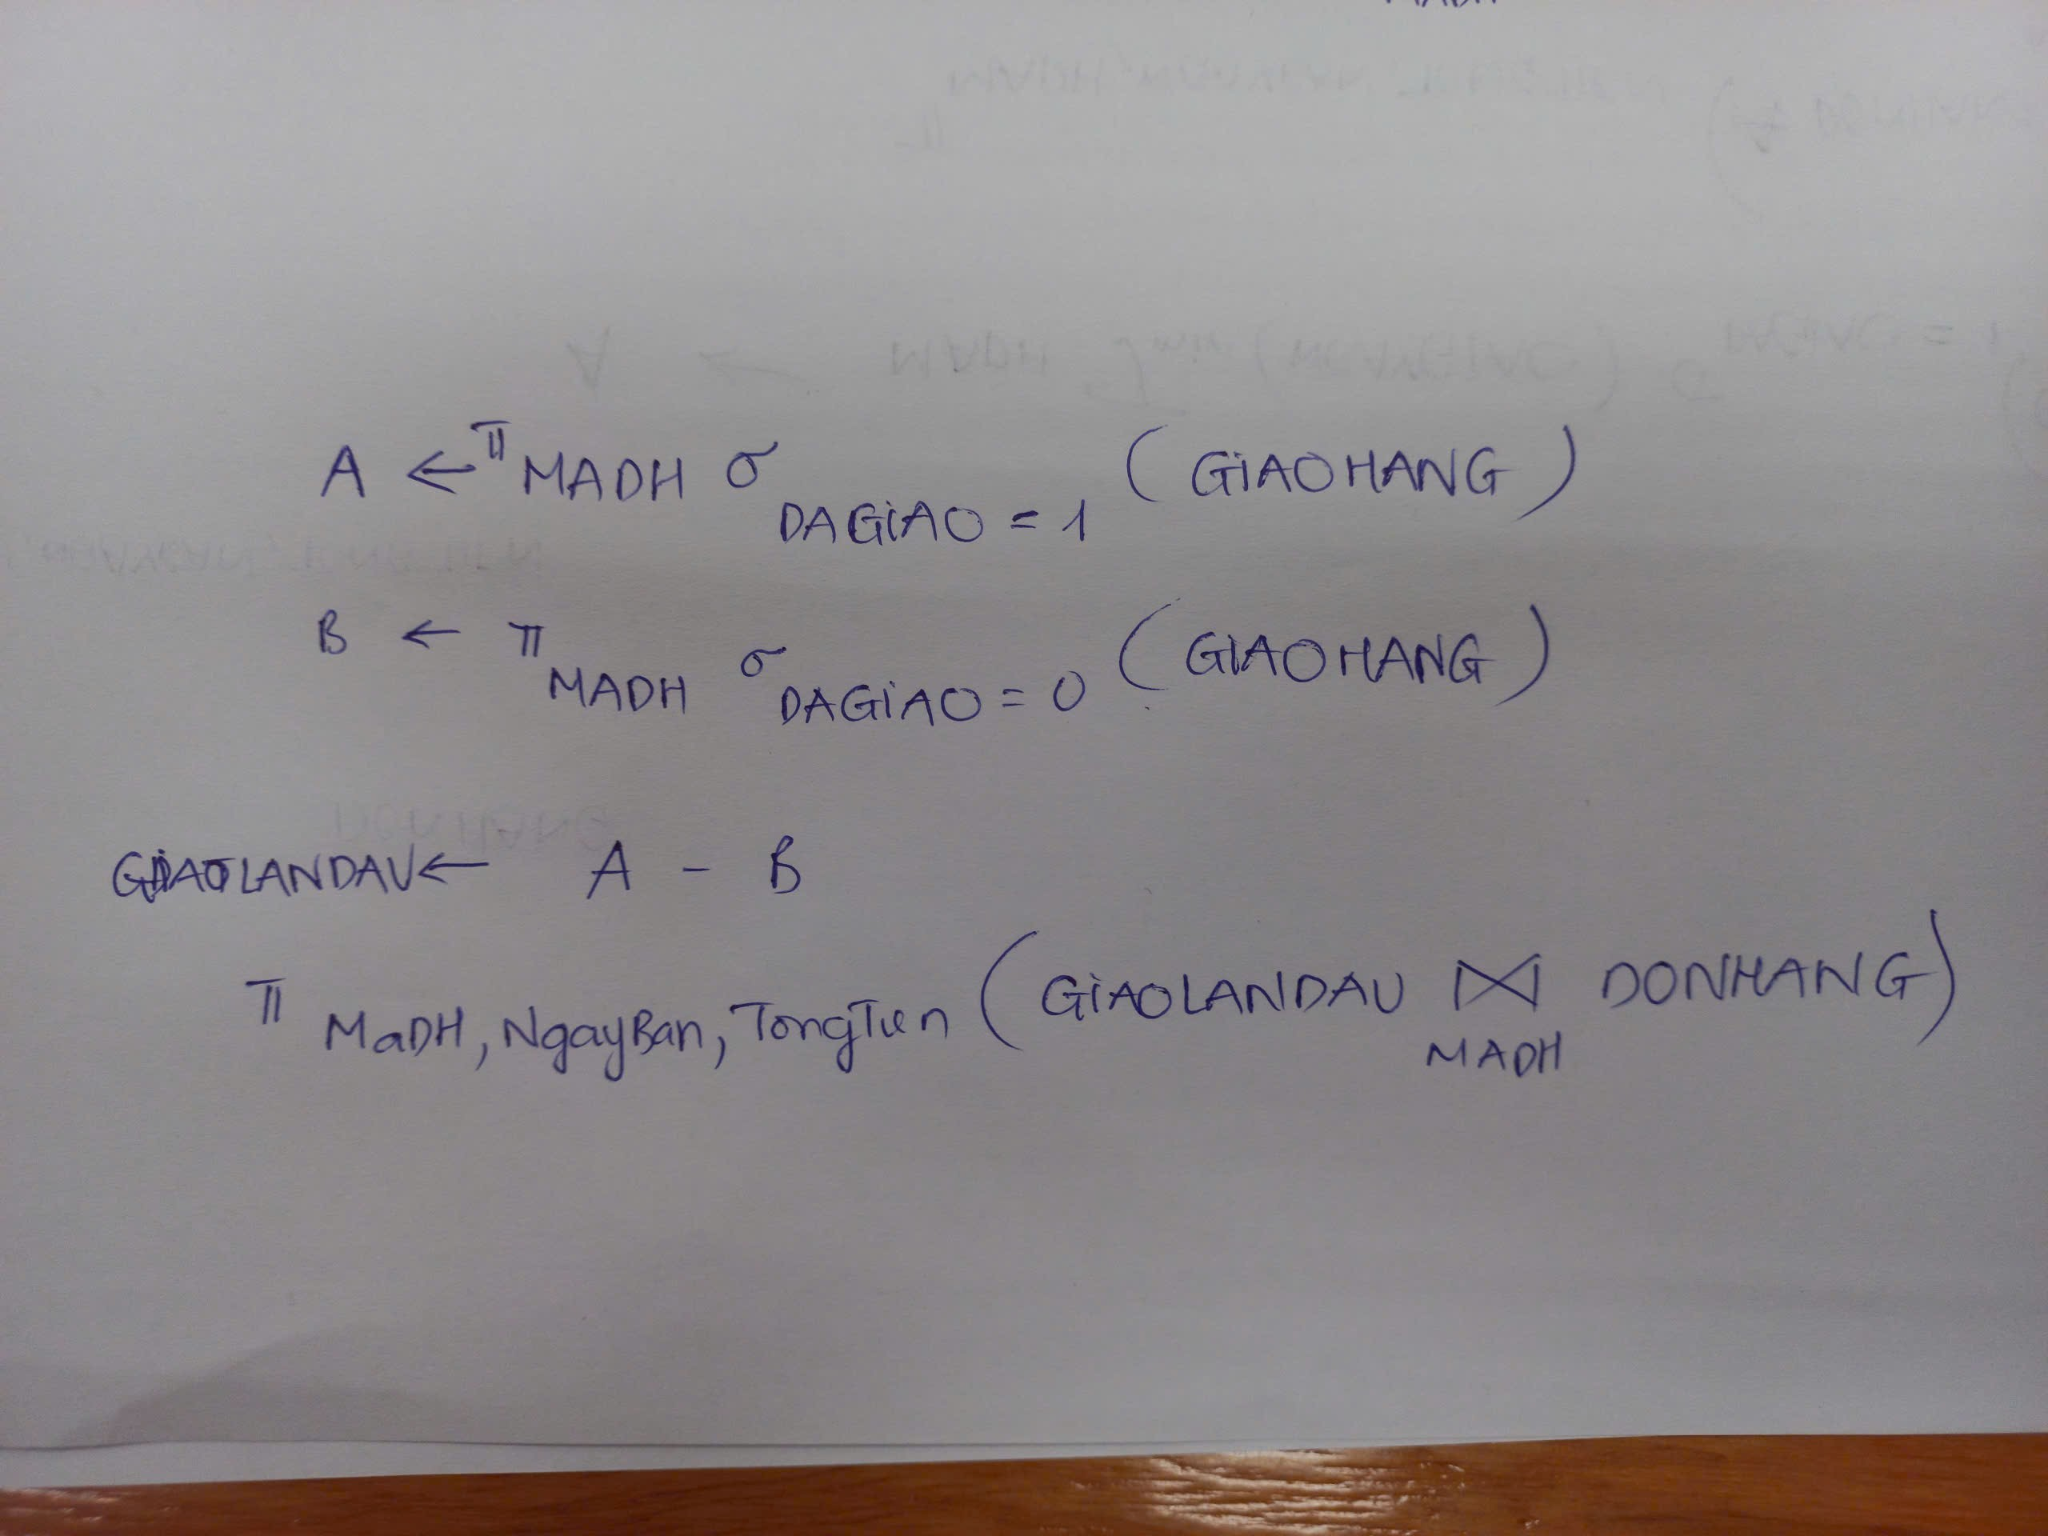 A ← π MADH σ DAGIAO = 1 ( GIAOHANG )
B ← π MADH σ DAGIAO = 0 ( GIAOHANG )
GIAOLANDAU ← A - B
π MaDH, NgayBan, TongTien ( GIAOLANDAU ⋈ DONHANG )
MADH